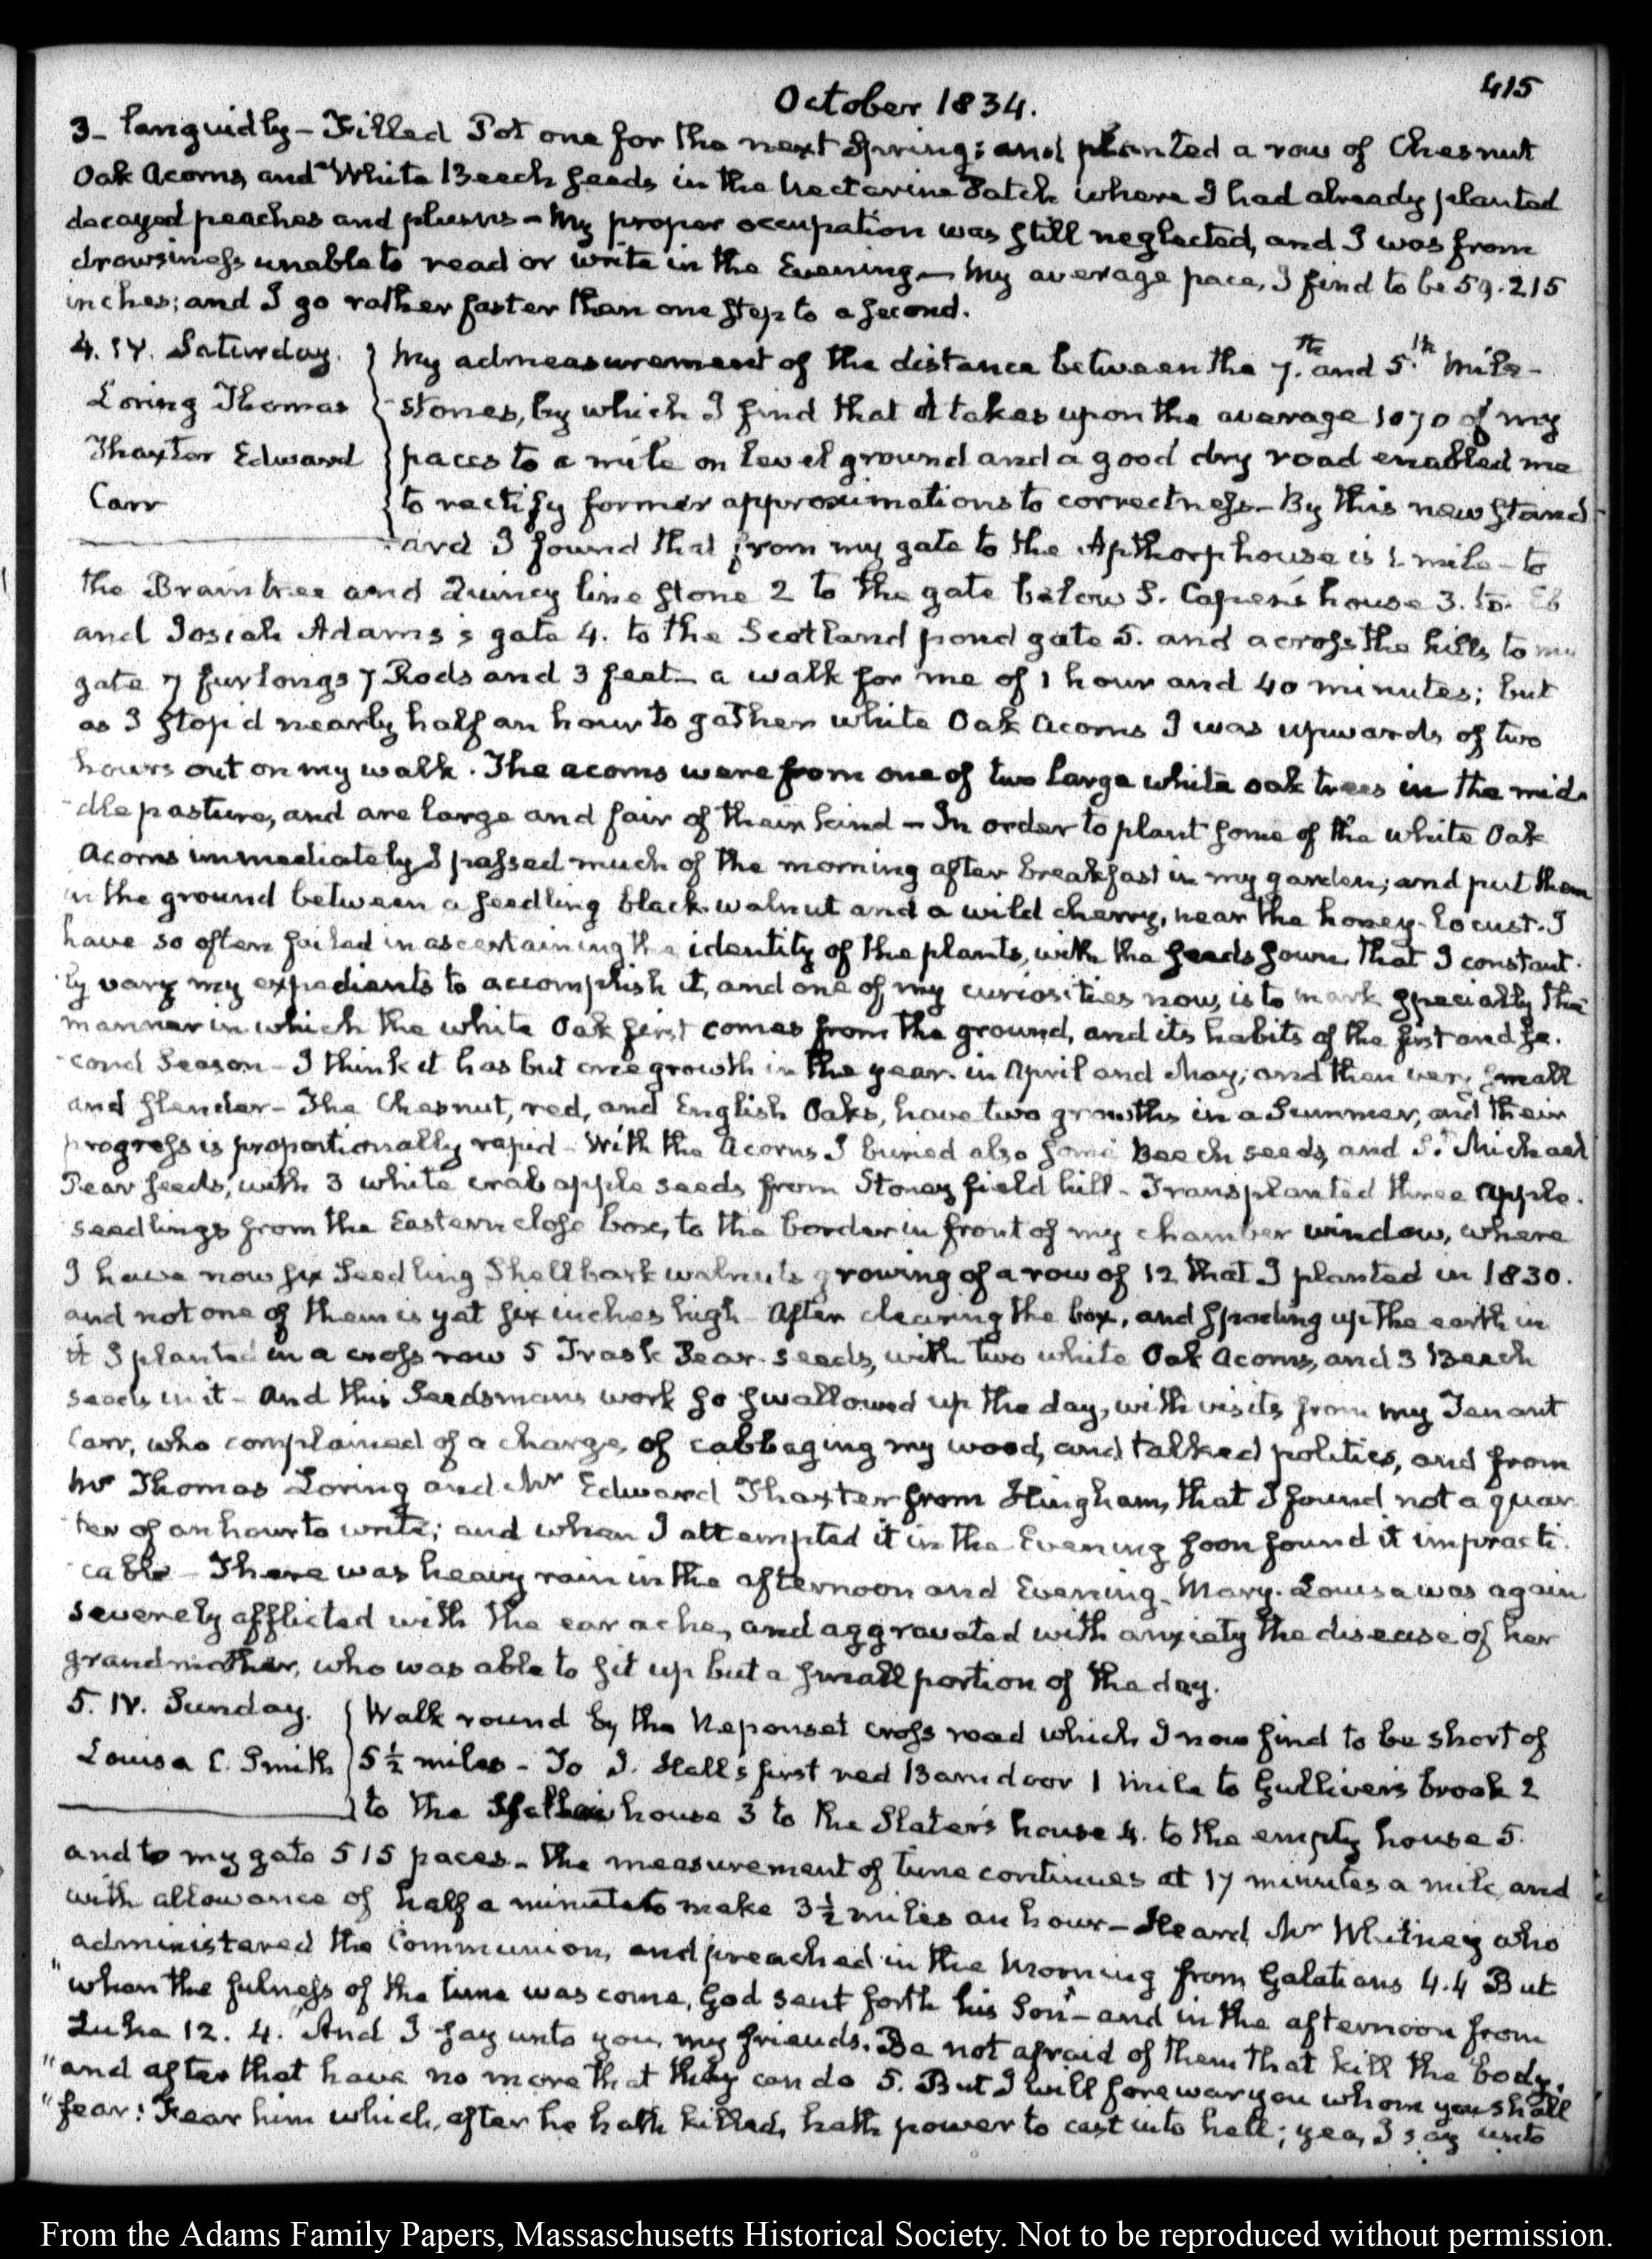 415
October 1834.
3- languidly - Filled Pot one for the next Spring; and planted a row of Chesnut
Oak Acorns, and White Beech seeds in the Nectarine Patch where I had already planted
decayed peaches and plums - My proper occupation was still neglected, and I was from
drowsiness unable to read or write in the Evening - My average pace, I find to be 59.215
inches; and I go rather faster than one step to a second.
4. IV. Saturday. My admeasurement of the distance between the 7.th and 5.th Mile-
Loring Thomas stones, by which I find that it takes upon the average 1070 of my
Thaxter Edward paces to a mile on level ground and a good dry road enabled me
Carr to rectify former approximations to correctness - By this new stand-
ard I found that from my gate to the Apthorp house is 1 mile - to
the Braintree and Quincy line stone 2 to the gate below S. Capen's house 3. to. Eb
and Josiah Adams's gate 4. to the Scotland pond gate 5. and across the hills to my
gate 7 furlongs 7 Rods and 3 feet - a walk for me of 1 hour and 40 minutes; but
as I stop'd nearly half an hour to gather white Oak Acorns I was upwards of two
hours out on my walk. The acorns were from one of two large white oak trees in the mid-
dle pasture, and are large and fair of their kind - In order to plant some of the white Oak
Acorns immediately I passed much of the morning after breakfast in my garden; and put them
in the ground between a seedling black walnut and a wild cherry, near the honey-locust. I
have so often failed in ascertaining the identity of the plants, with the seeds sown, that I constant-
ly vary my expedients to accomplish it, and one of my curiosities now, is to mark specially the
manner in which the white Oak first comes from the ground, and its habits of the first and se-
cond Season - I think it has but one growth in the year. in April and May; and then very small
and slender - The Chesnut, red, and English Oaks, have two growths in a Summer, and their
progress is proportionally rapid - With the Acorns I buried also some Beech seeds, and St. Michael
Pear seeds, with 3 white crab apple seeds from Stoney field hill - Transplanted three apple-
seedlings from the Eastern close box, to the border in front of my chamber window, where
I have now six Seedling Shellbark walnuts growing of a row of 12 that I planted in 1830.
and not one of them is yet six inches high - After clearing the box, and spading up the earth in
it I planted in a cross row 5 Trask Pear-seeds, with two white Oak Acorns, and 3 Beech
seeds in it - And this Seedsmans work so swallowed up the day, with visits from my Tenant
Carr, who complained of a charge, of cabbaging my wood, and talked politics, and from
Mr Thomas Loring and Mr Edward Thaxter from Hingham, that I found not a quar-
ter of an hour to write; and when I attempted it in the Evening soon found it impracti-
cable - There was heavy rain in the afternoon and Evening - Mary-Louisa was again
severely afflicted with the ear ache, and aggravated with anxiety the disease of her
grandmother, who was able to sit up but a small portion of the day.
5. IV. Sunday. Walk round by the Neponset cross road which I now find to be short of
Louisa C. Smith 5½ miles - To J. Hall's first red Barn door 1 Mile to Gulliver's brook 2
to the house 3 to the Slater's house 4. to the empty house 5.
and to my gate 515 paces - The measurement of time continues at 17 minutes a mile, and
with allowance of half a minute to make 3½ miles an hour - Heard Mr Whitney who
administered the Communion, and preached in the Morning from Galatians 4.4 But
"when the fulness of the time was come, God sent forth his Son" - and in the afternoon from
Luke 12. 4. "And I say unto you, my friends. Be not afraid of them that kill the body,
"and after that have no more that they can do 5. But I will forewarn you whom you shall
"fear: Fear him which, after he hath killed, hath power to cast into hell; yea, I say unto
From the Adams Family Papers, Massaschusetts Historical Society. Not to be reproduced without permission.